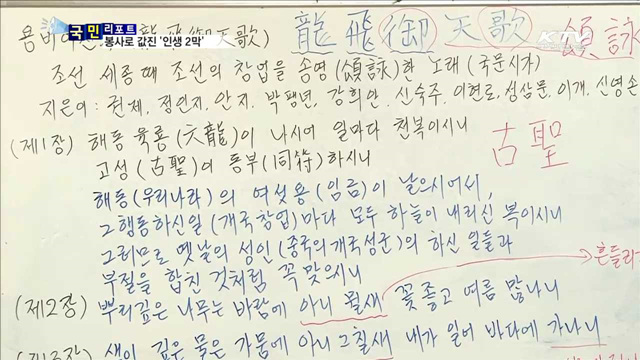 국민 리포트
봉사로 값진 '인생 2막'
KTV
용비어천가(龍飛御天歌) 龍飛御天歌 頌詠
조선 세종때 조선의 창업을 송영(頌詠)한 노래(국문시가)
지은이: 권제, 정인지, 안지, 박팽년, 강희안, 신숙주, 이현로, 성삼문, 이개, 신영손
(제1장) 해동 육룡(六龍)이 나시어 일마다 천복이시니
고성(古聖)이 동부(同符)하시니 古聖
해동(우리나라)의 여섯용(임금)이 날으시어서,
그행동하신일(개국창업)마다 모두 하늘이 내리신 복이시니
그러므로 옛날의 성인(중국의개국성군)의 하신 일들과
부절을 합친 것처럼 꼭맞으시니 흔들리
(제2장) 뿌리깊은 나무는 바람에 아니 뮐새 꽃좋고 여름 많나니
샘이 깊은 물은 가뭄에 아니그칠새 내가 일어 바다에 가나니